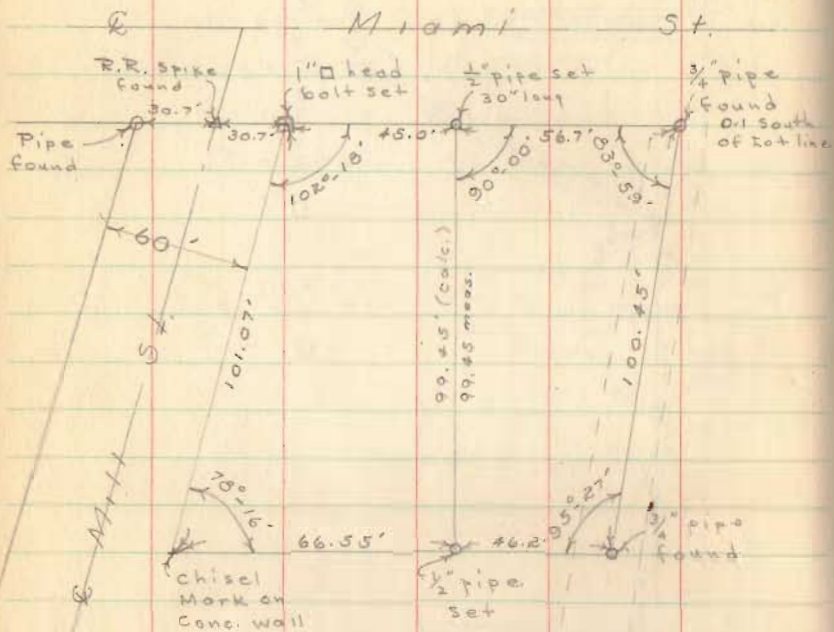 ℄ Miami St.
R.R. Spike
found
1"□ head
bolt set
½" pipe set
30" long
¾" pipe
found
0.1 South
of Lot line
Pipe
found
30.7'
30.7'
45.0'
56.7'
102°-18'
90°-00'
83°-59'
60'
101.07'
99.45' (calc.)
99.45 meas.
100.45'
℄ Mill St.
78°-16'
66.55'
46.2'
95°-27'
Chisel
Mark on
Conc. wall
½" pipe
set
¾" pipe
found